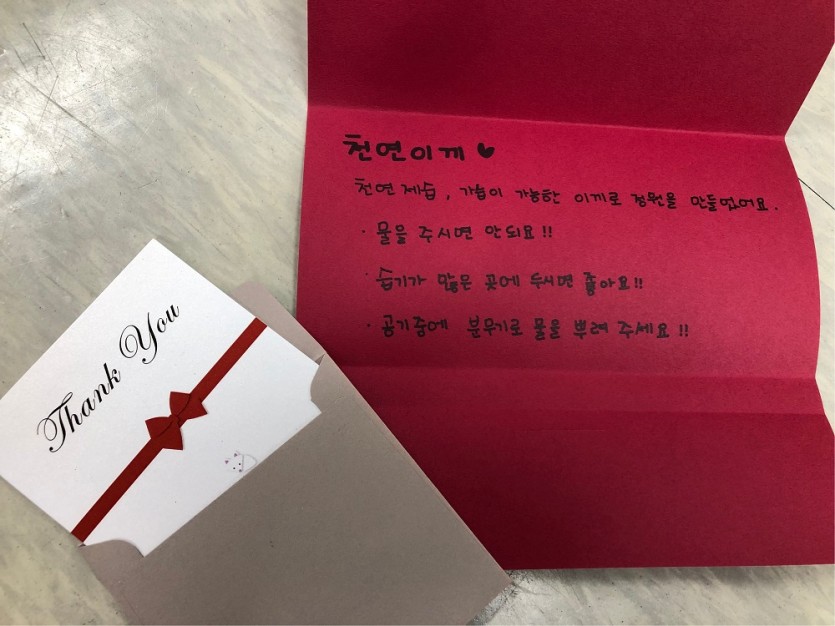 천연이끼 ♥
천연 제습, 가습이 가능한 이끼로 정원을 만들었어요.
· 물을 주시면 안되요!!
· 습기가 많은 곳에 두시면 좋아요!!
· 공기중에 분무기로 물을 뿌려 주세요!!
Thank You